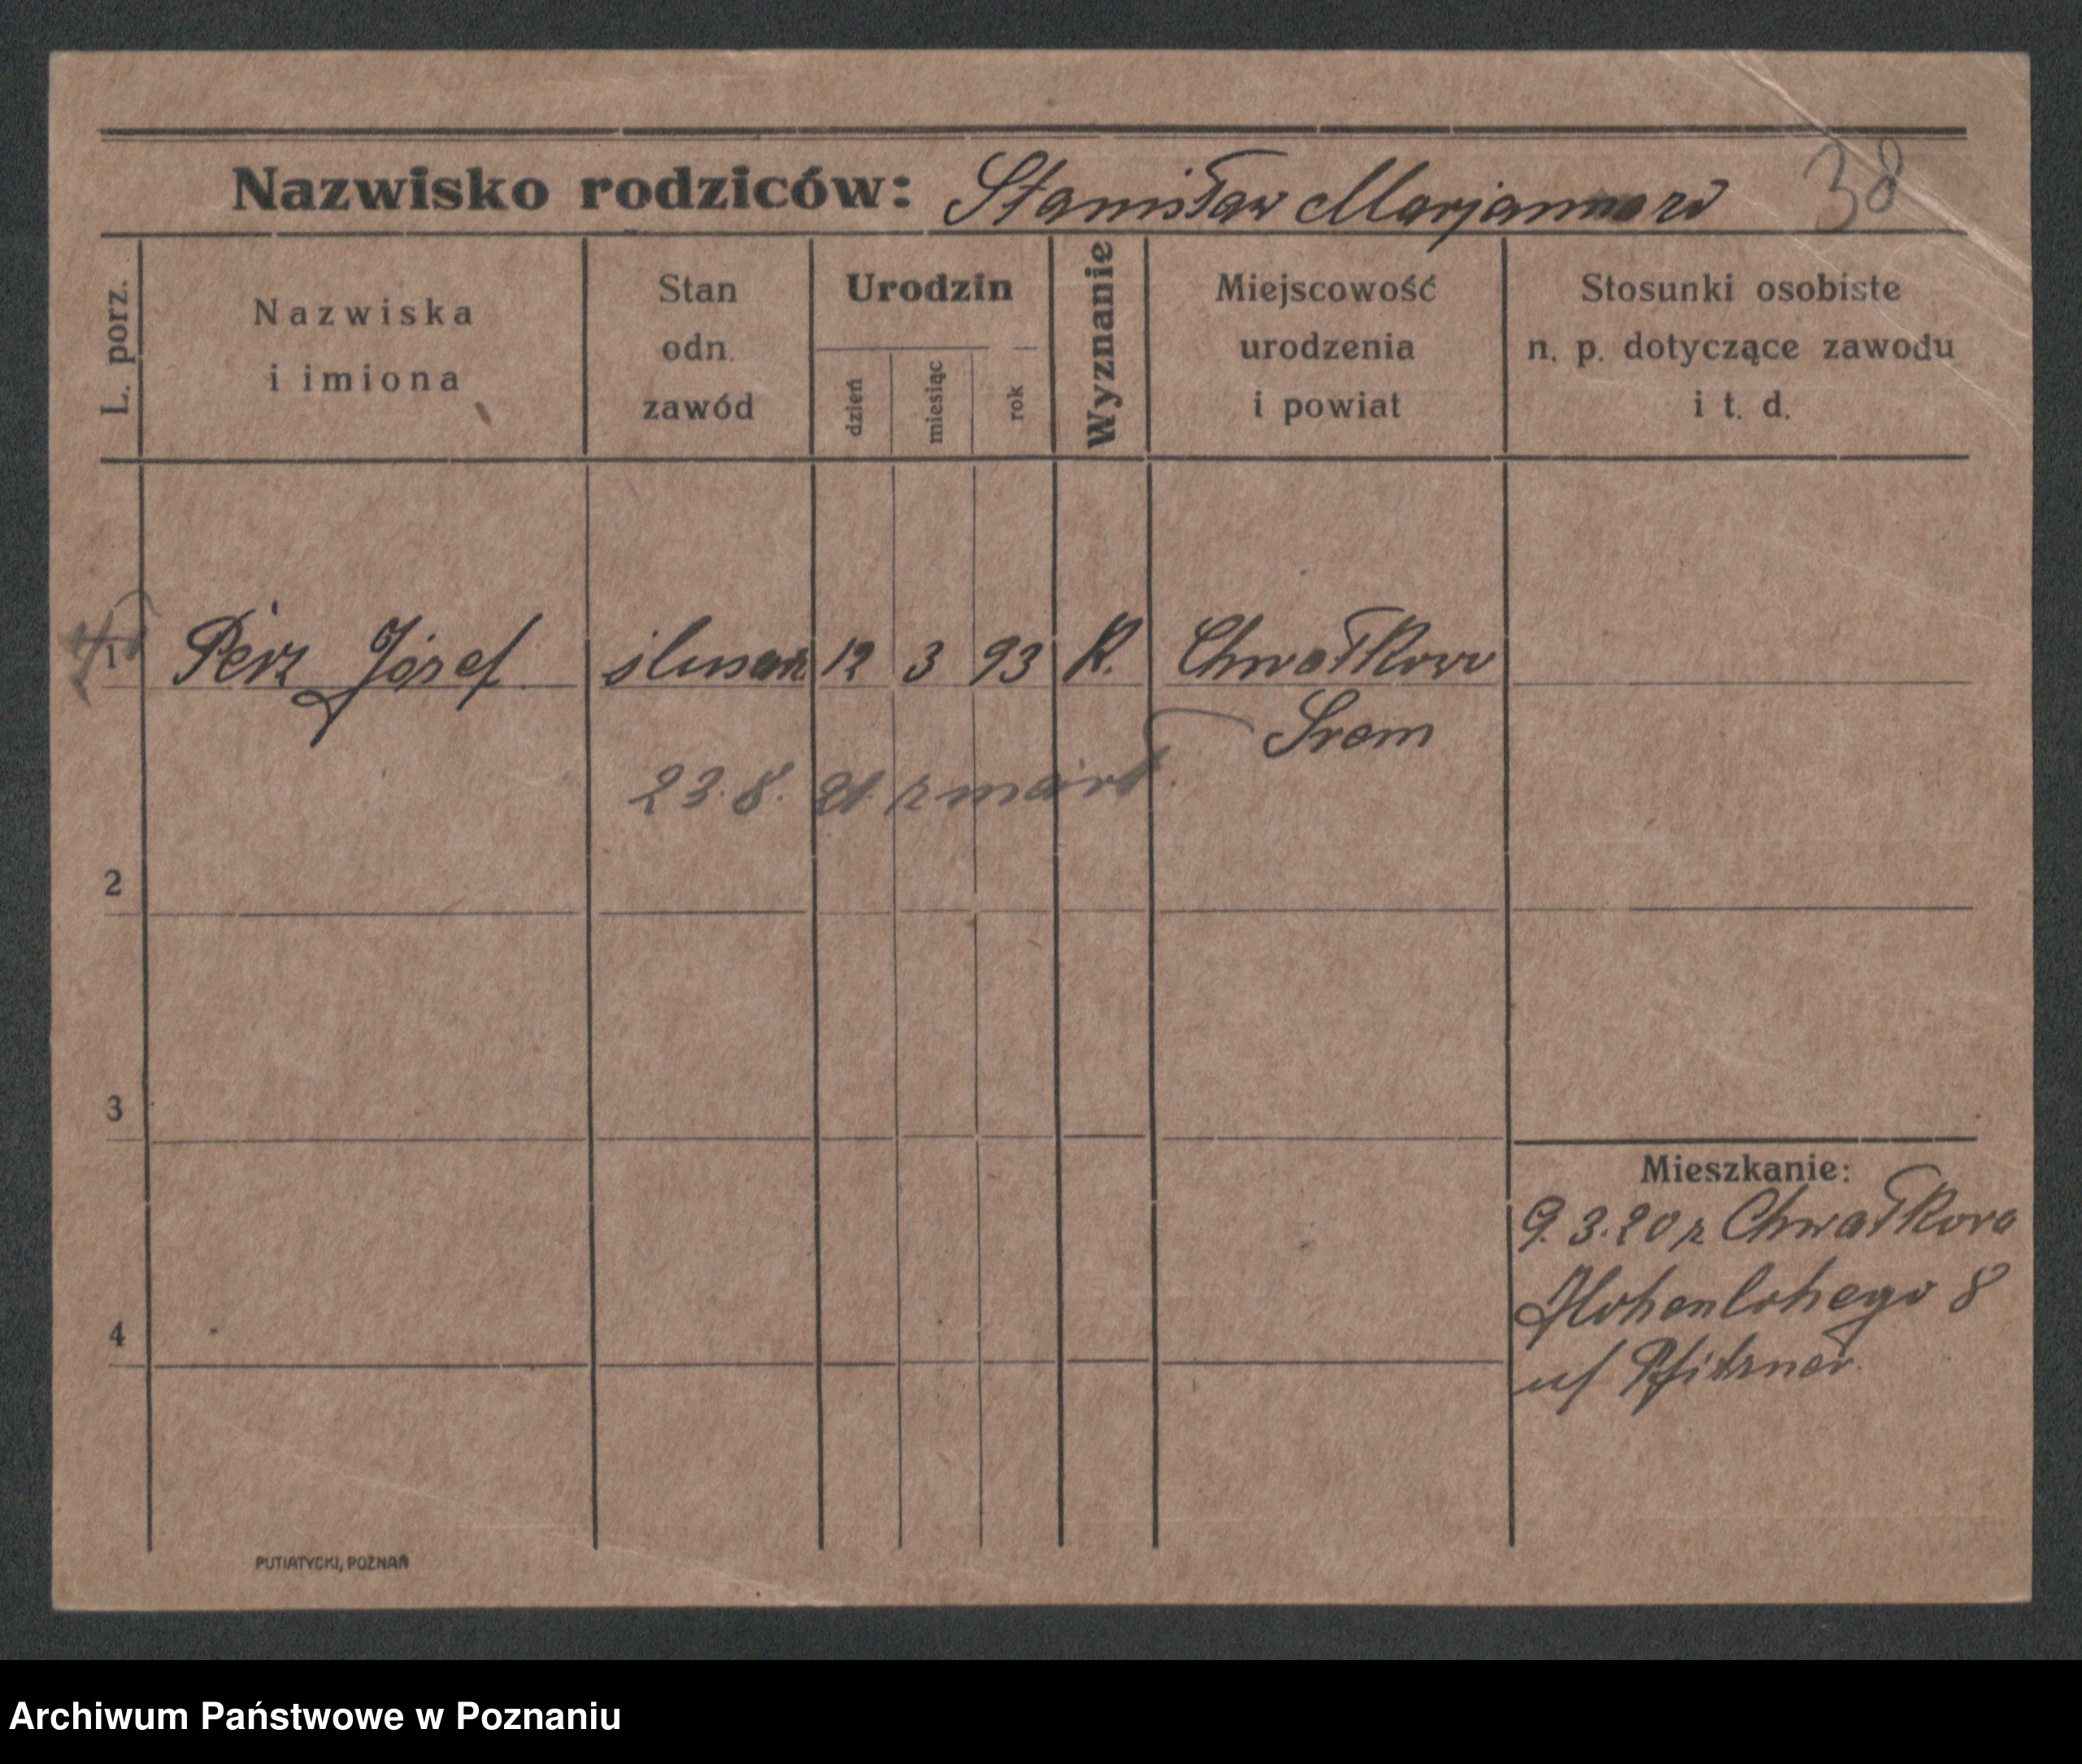 Nazwisko rodziców: Stanisław Marjanna 38
L. porz.
Nazwiska
i imiona
Stan
odn.
zawód
Urodzin
dzień
miesiąc
rok
Wyznanie
Miejscowość
urodzenia
i powiat
Stosunki osobiste
n. p. dotyczące zawodu
i t. d.
1 Perz Józef ślusarz 12 3 93 K. Chwałkowo
Srem
23.8.21 zmarł
2
3
4
Mieszkanie:
9.3.20 z Chwałkowa
Hohenlohego 8
u/ Pfitzner
PUTIATYCKI, POZNAŃ
Archiwum Państwowe w Poznaniu